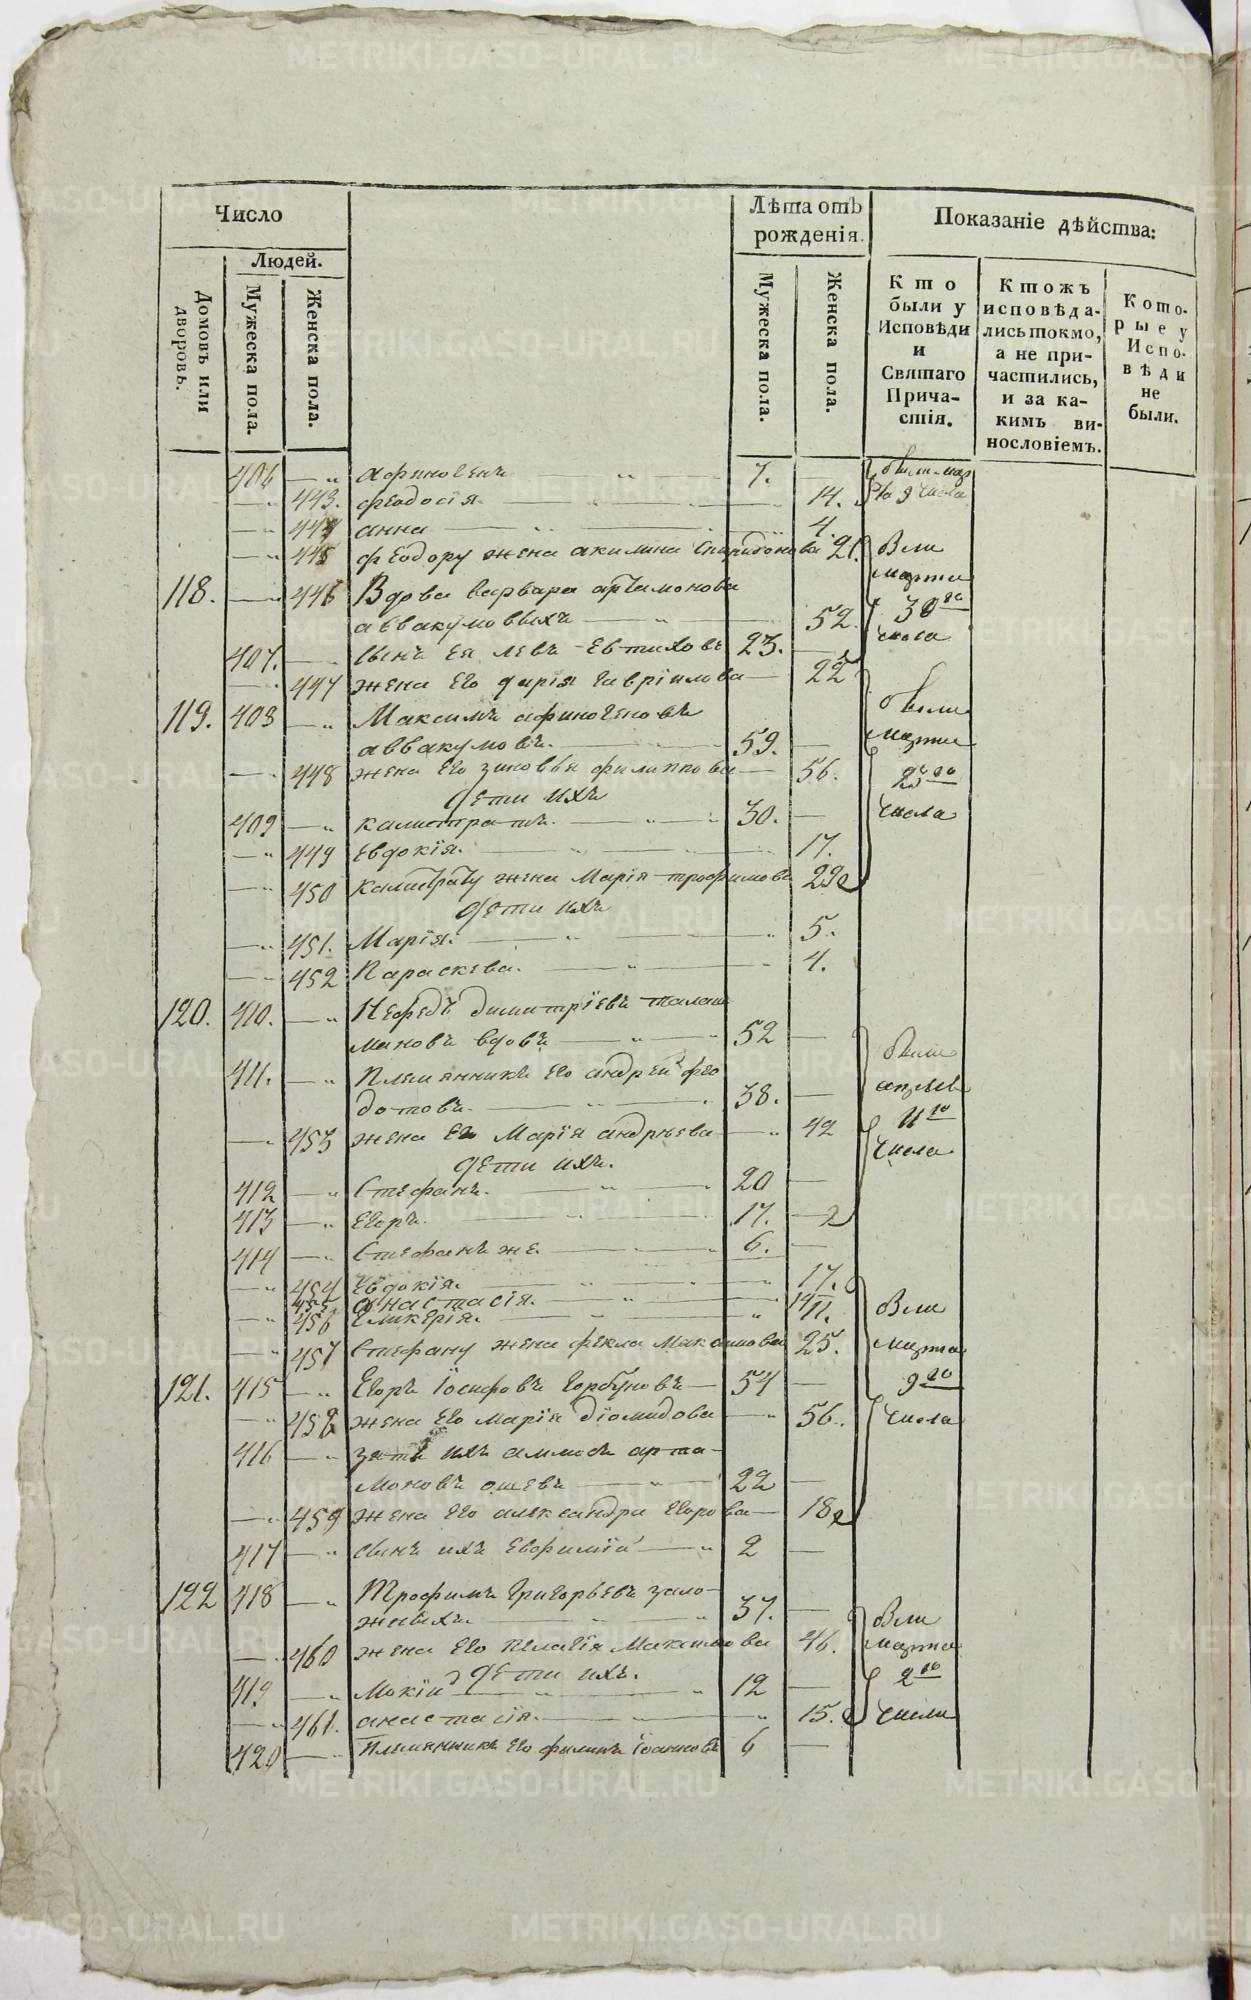 Число
Лѣта отъ рожденія.
Показаніе дѣйства:
Людей.
Домовъ или дворовъ.
Мужеска пола.
Женска пола.
Мужеска пола.
Женска пола.
Кто были у Исповѣди и Святаго Причастія.
Ктожъ исповѣдались токмо, а не причастились, и за какимъ винословіемъ.
Которые у Исповѣди не были.
406 афиногенъ 7.
443. феодосія 14.
444 анна 4
445 феодору жена акилина спиридонова 21.
были
марта
30го
числа
118. 446 Вдова варвара артамонова
аввакумовыхъ 52.
407. сынъ ея левъ евтиховъ 23.
447 жена его дарія гавріилова 22
119. 408 Максимъ афиногеновъ
аввакумовъ. 59.
448 жена его зиновья филиппова 56.
дети ихъ
409 калистратъ. 30.
449 евдокія. 17.
450 калистрату жена Марія трофимова 29
были
марта
23го
числа
дети ихъ
451. Марія. 5.
452 Параскева. 4.
120. 410. Нефедъ димитріевъ
мановъ вдовъ 52
411. Племянникъ его андрей фео
дотовъ. 38.
453 жена его Марія андреева 42
были
11го
числа
дети ихъ.
412 Стефанъ. 20
413 Егоръ. 17.
414 Стефанъ же. 6.
454 Евдокія. 17.
455 анастасія. 14
456 Гликерія. 11.
457 Стефану жена фекла Максимова 25.
121. 415 Егоръ іосифовъ горбуновъ 54
458 жена его марія діомидова 56.
были
марта
9го
числа
416 зять ихъ аммосъ арта-
моновъ ошевъ 22
459 жена его александра егорова 18
417 сынъ ихъ евфимій 2
122 418 Трофимъ григорьевъ зало-
жныхъ. 37.
460 жена его пелагія Максимова 46.
дети ихъ.
419 Мокій 12
461. анастасія. 15.
420 племянникъ его филипъ іоанновъ 6
были
марта
2го
числа
METRIKI.GASO-URAL.RU